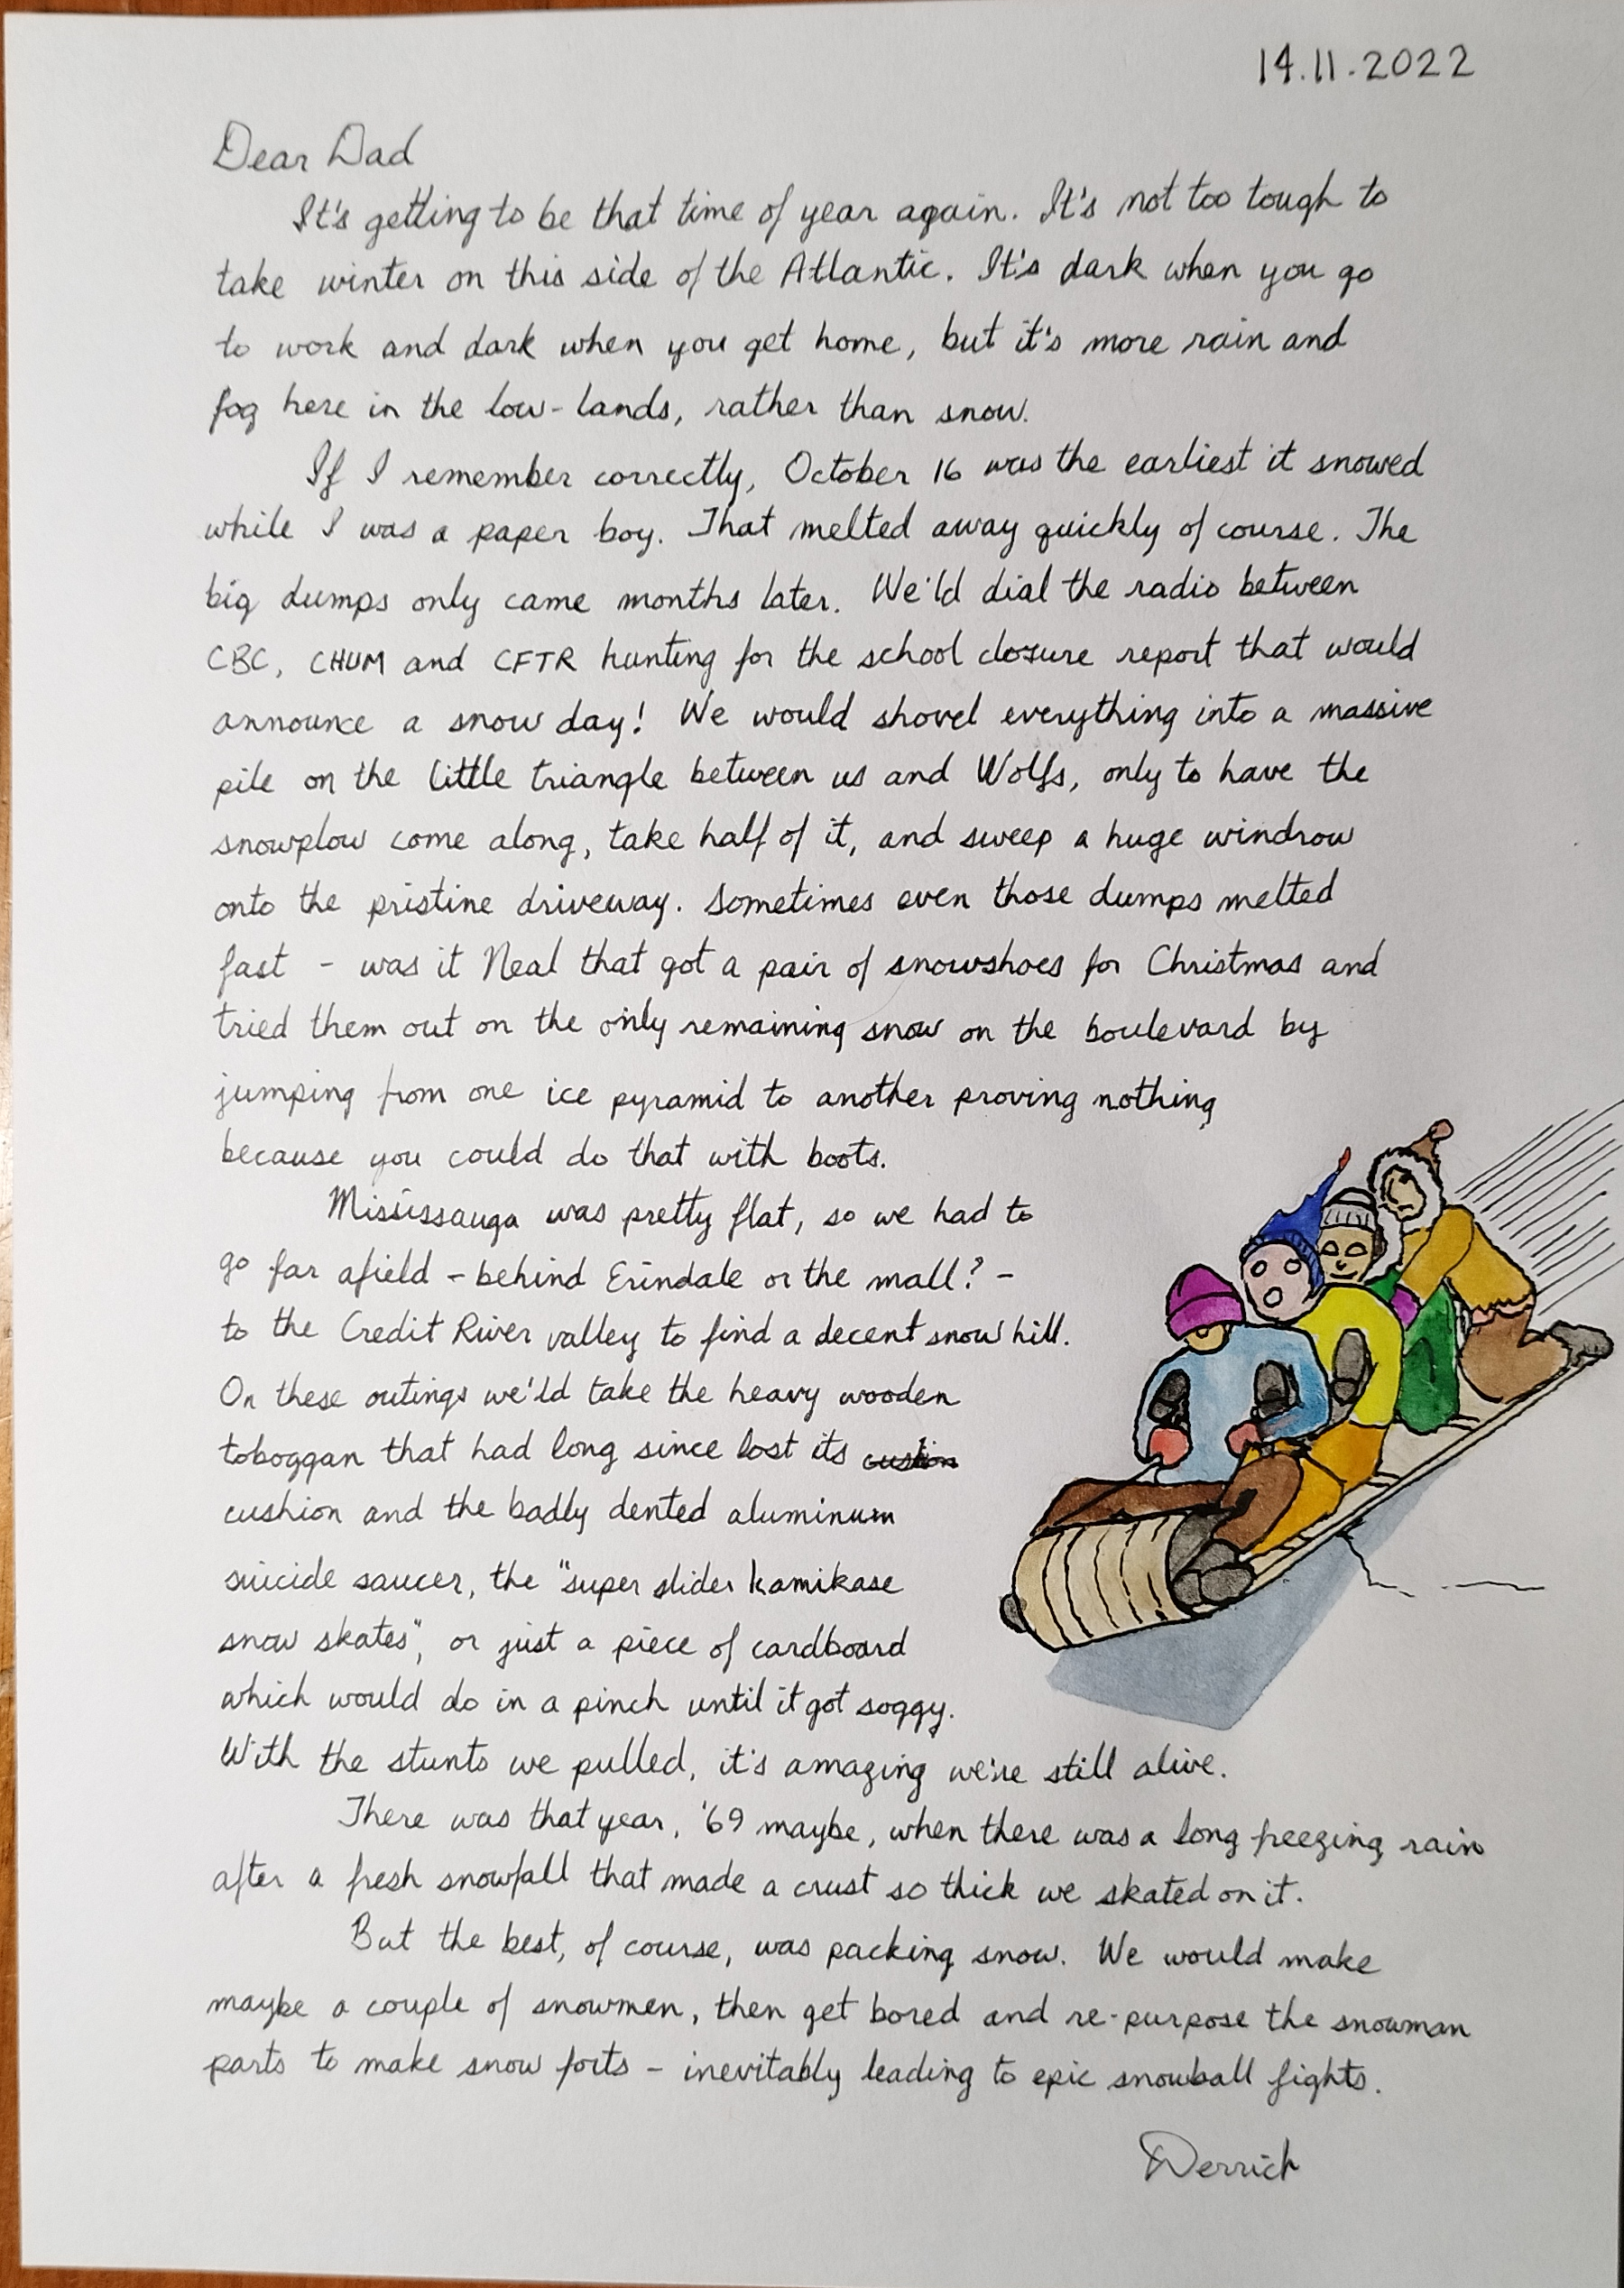 14.11.2022
Dear Dad
It's getting to be that time of year again. It's not too tough to
take winter on this side of the Atlantic. It's dark when you go
to work and dark when you get home, but it's more rain and
fog here in the low-lands, rather than snow.
If I remember correctly, October 16 was the earliest it snowed
while I was a paper boy. That melted away quickly of course. The
big dumps only came months later. We'ld dial the radio between
CBC, CHUM and CFTR hunting for the school closure report that would
announce a snow day! We would shovel everything into a massive
pile on the little triangle between us and Wolfs, only to have the
snowplow come along, take half of it, and sweep a huge windrow
onto the pristine driveway. Sometimes even those dumps melted
fast - was it Neal that got a pair of snowshoes for Christmas and
tried them out on the only remaining snow on the boulevard by
jumping from one ice pyramid to another proving nothing
because you could do that with boots.
Mississauga was pretty flat, so we had to
go far afield - behind Erindale or the mall? -
to the Credit River valley to find a decent snow hill.
On these outings we'ld take the heavy wooden
toboggan that had long since lost its custion
cushion and the badly dented aluminum
suicide saucer, the "super slider kamikase
snow skates", or just a piece of cardboard
which would do in a pinch until it got soggy.
With the stunts we pulled, it's amazing we're still alive.
There was that year, '69 maybe, when there was a long freezing rain
after a fresh snowfall that made a crust so thick we skated on it.
But the best, of course, was packing snow. We would make
maybe a couple of snowmen, then get bored and re-purpose the snowman
parts to make snow forts - inevitably leading to epic snowball fights.
Derrick